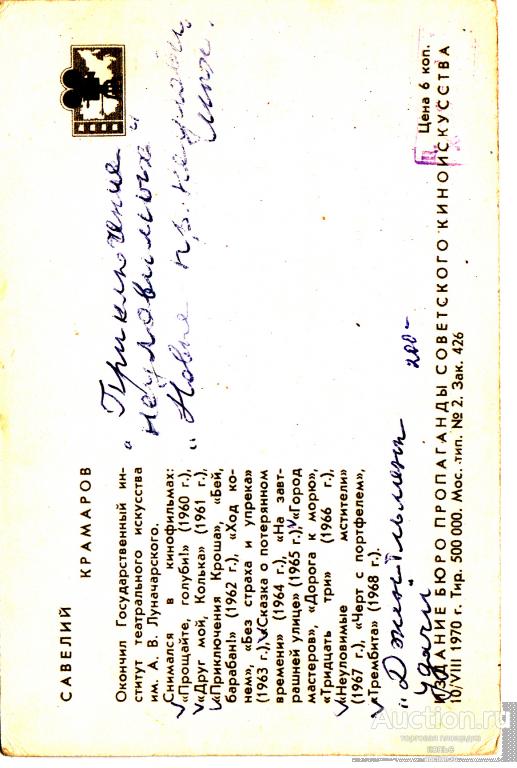 САВЕЛИЙ КРАМАРОВ
Окончил Государственный ин-
ститут театрального искусства
им. А. В. Луначарского.
Снимался в кинофильмах:
«Прощайте, голуби!» (1960 г.),
«Друг мой, Колька» (1961 г.),
«Приключения Кроша», «Бей,
барабан!» (1962 г.), «Ход ко-
нем», «Без страха и упрека»
(1963 г.), «Сказка о потерянном
времени» (1964 г.), «На завт-
рашней улице» (1965 г.), «Город
мастеров», «Дорога к морю»,
«Тридцать три» (1966 г.),
«Неуловимые мстители»
(1967 г.), «Черт с портфелем»,
«Трембита» (1968 г.).
"Приключение
неуловимых"
"Новые пр. неулови
"Джентльмены
удачи
200-
Цена 6 коп.
ИЗДАНИЕ БЮРО ПРОПАГАНДЫ СОВЕТСКОГО КИНОИСКУССТВА
10/VIII 1970 г. Тир. 500 000. Мос. тип. № 2. Зак. 426
Auction.ru
торговая площадка